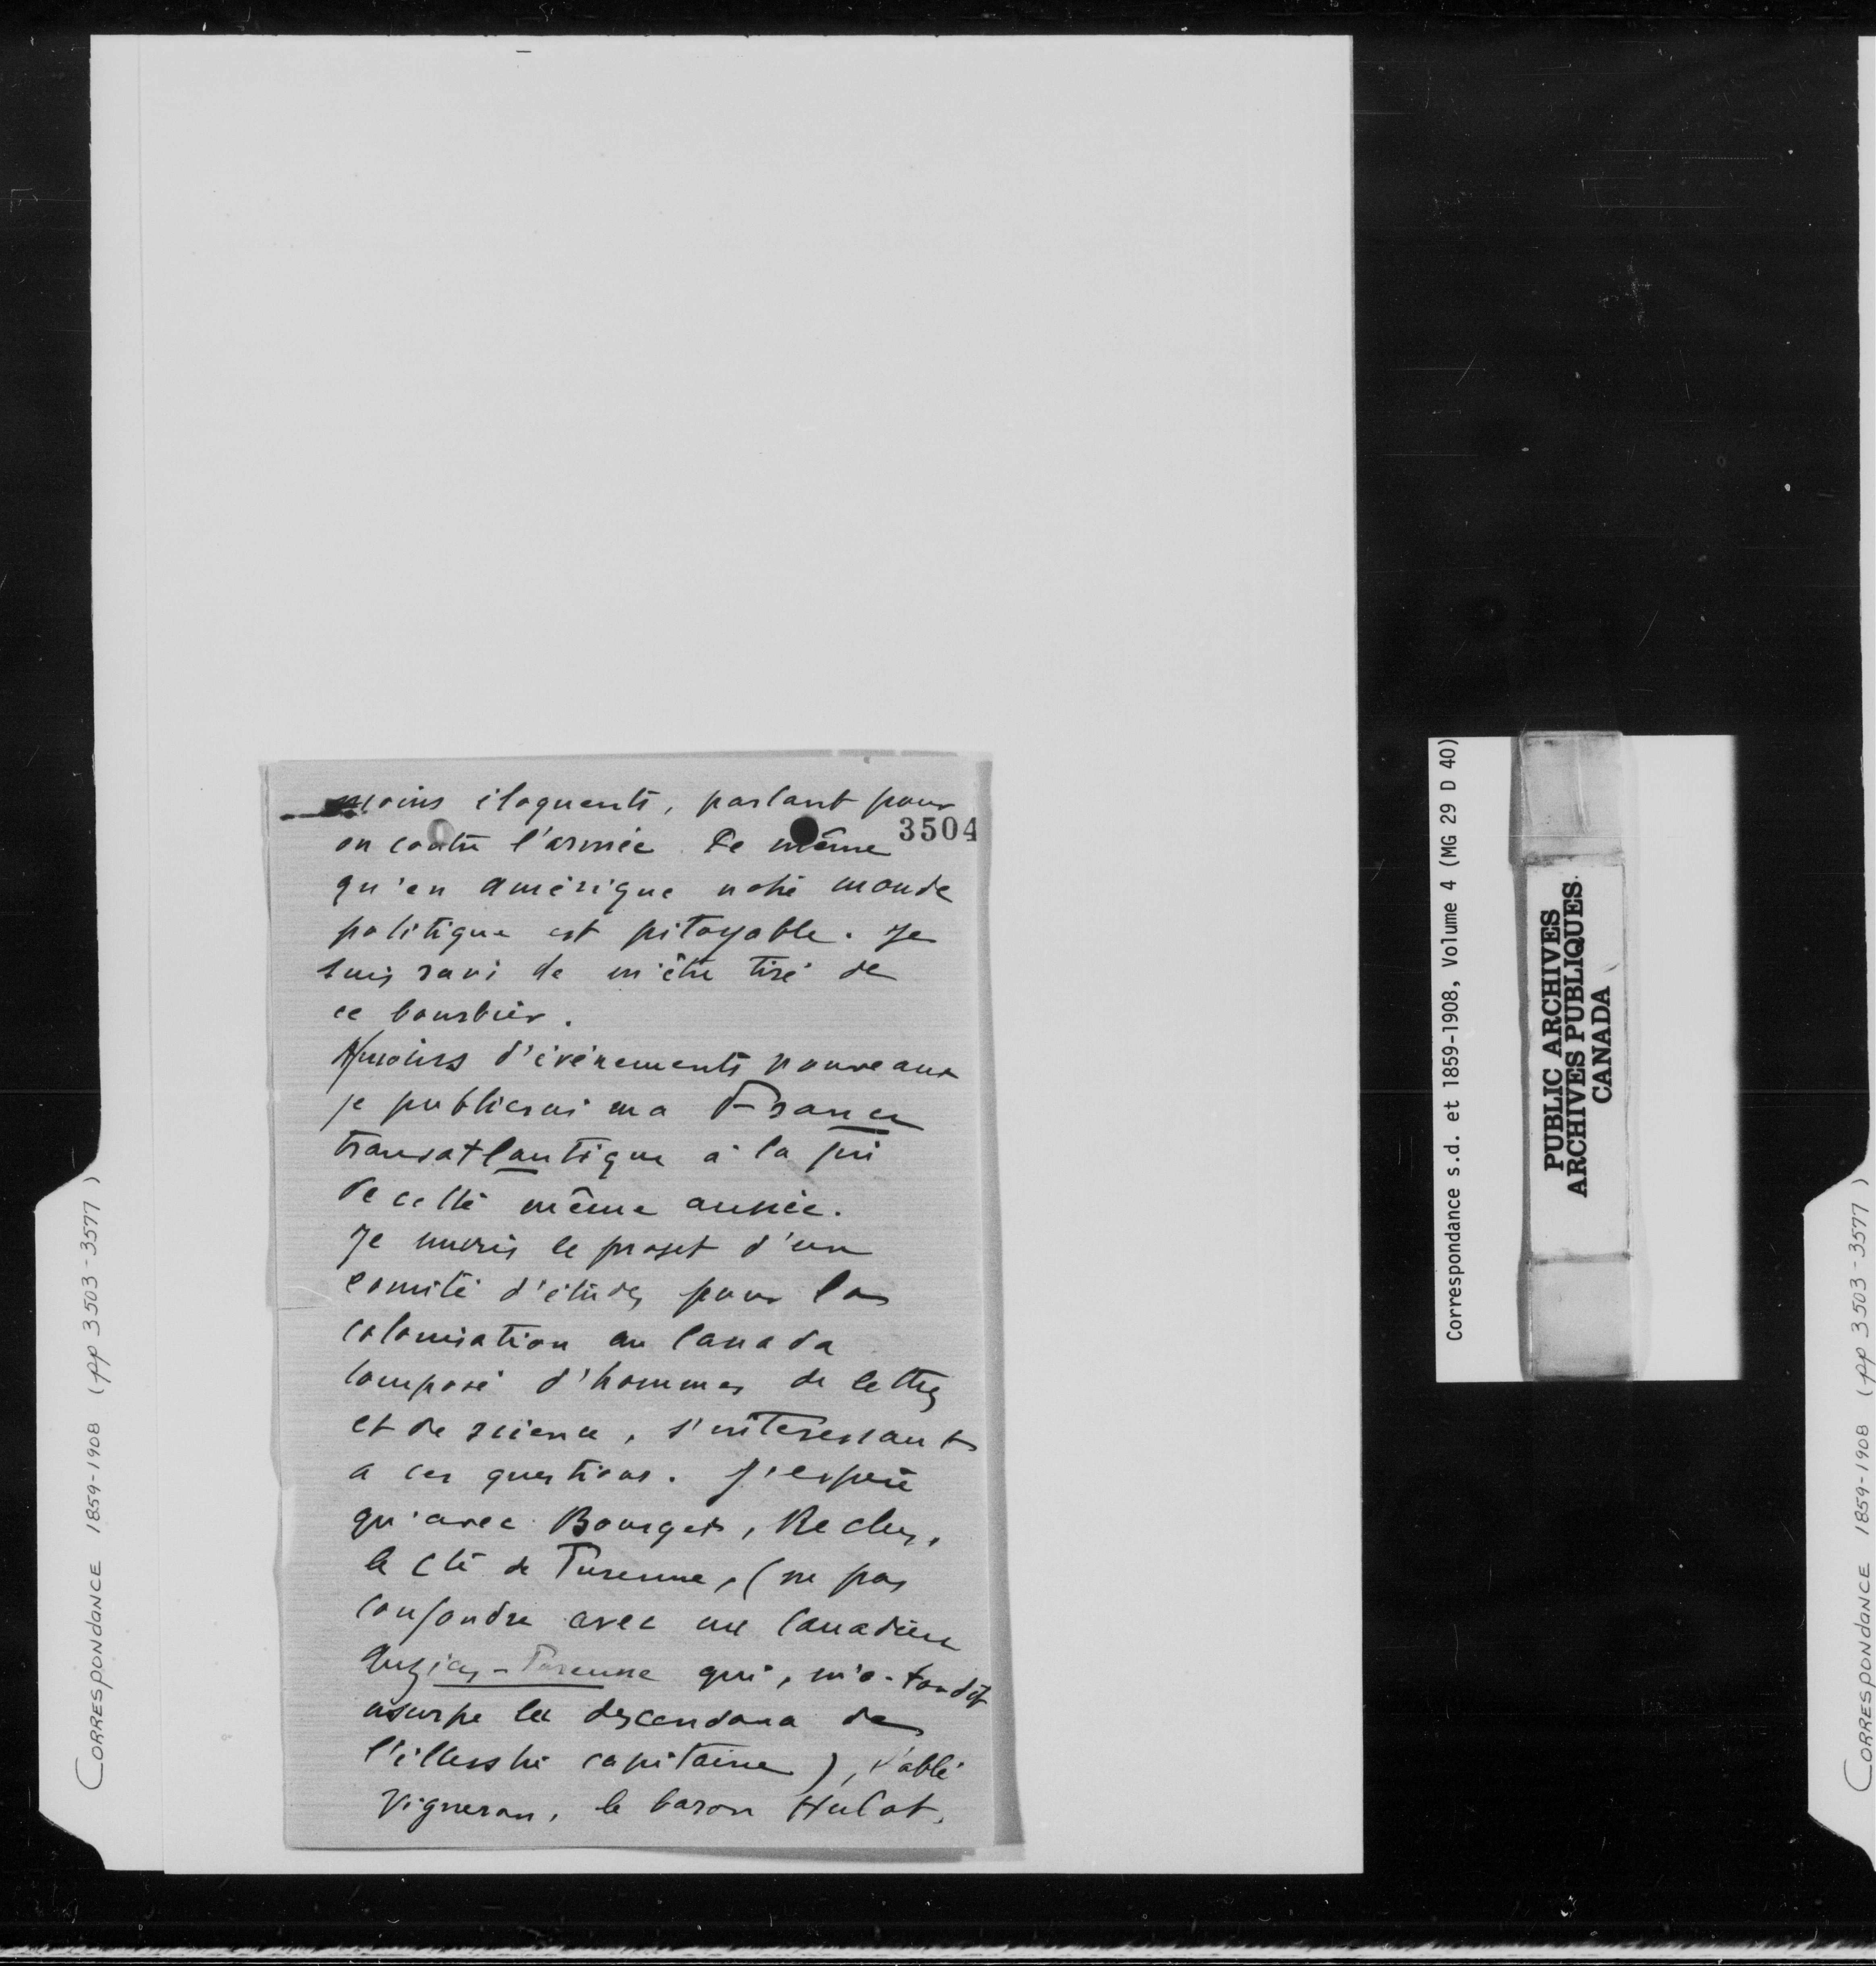 moins éloquents, parlant pour
3504
ou contre l'armée. De même
qu'en Amérique notre monde
politique est pitoyable. Je
suis ravi de m'être tiré de
ce bourbier.
A moins d'événements nouveaux
je publierai ma France
transatlantique à la fin
de cette même année.
Je muris le projet d'un
comité d'études pour la
colonisation au Canada
composé d'hommes de lettres
et de science, s'intéressant
a ces questions. J'espère
qu'avec Bourget, Reclus,
le Cte de Turenne, (ne pas
confondre avec un Canadien
Auzias-Turenne qui, m'a-t-on dit
usurpe la descendance de
l'illustre capitaine), l'abbé
Vigneron, le baron Hulot,
CORRESPONDANCE 1859-1908 (pp 3503-3577)
Correspondance s.d. et 1859-1908, Volume 4 (MG 29 D 40)
PUBLIC ARCHIVES
ARCHIVES PUBLIQUES
CANADA
CORRESPONDANCE 1859-1908 (pp 3503-3577)